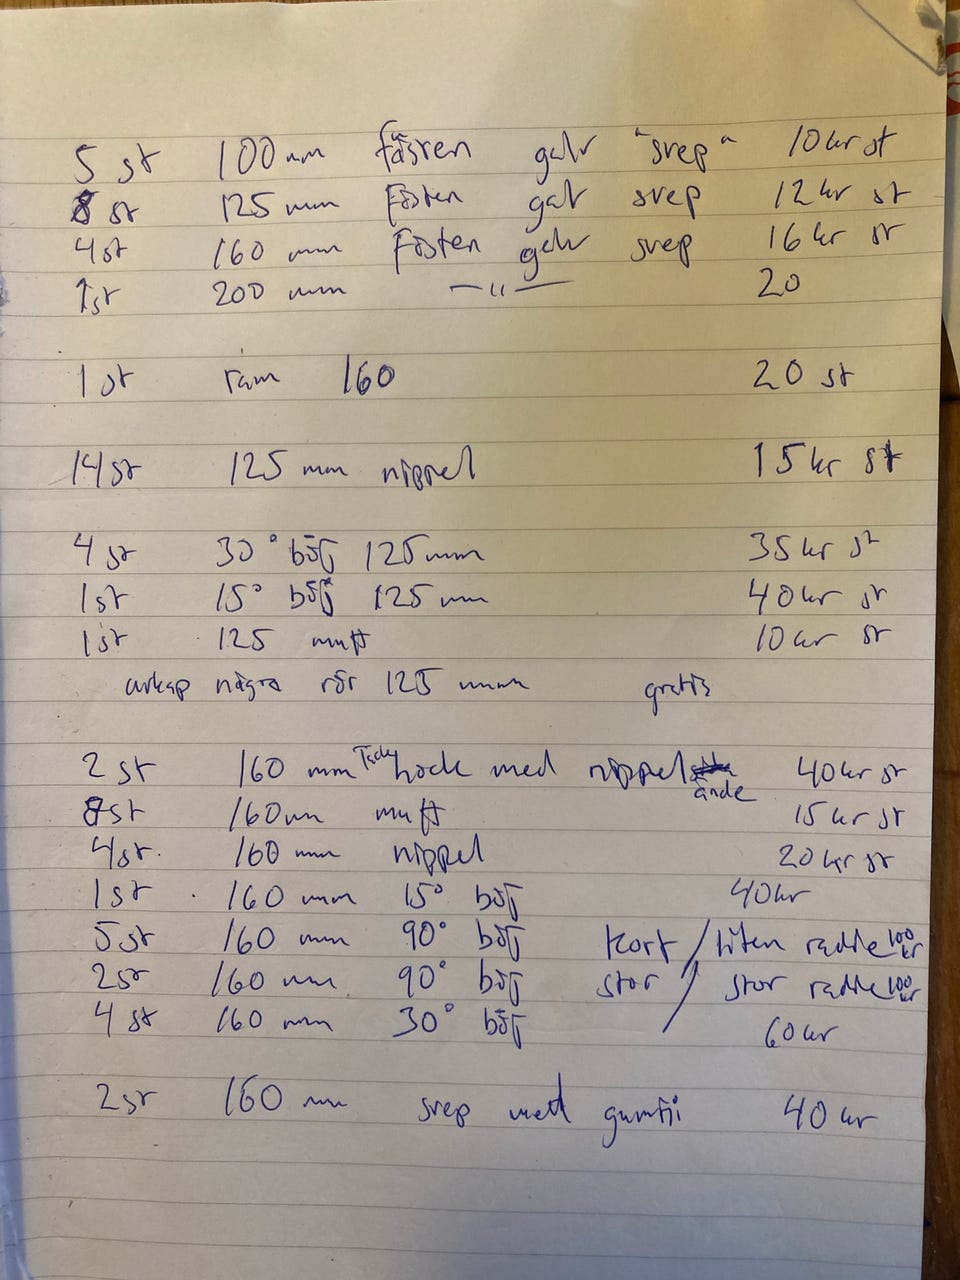 5 st 100 mm fästen galv "svep" 10 kr st
8 st 125 mm Fästen galv svep 12 kr st
4 st 160 mm Fästen galv svep 16 kr st
1 st 200 mm —"— 20
1 st ram 160 20 st
14 st 125 mm nippel 15 kr st
4 st 30° böj 125 mm 35 kr st
1 st 15° böj 125 mm 40 kr st
1 st 125 muff 10 kr st
avkap några rör 125 mm gratis
2 st 160 mm lock med nippel ände 40 kr st
8 st 160 mm muff 15 kr st
4 st. 160 mm nippel 20 kr st
1 st 160 mm 15° böj 40 kr
5 st 160 mm 90° böj kort / liten radie 100 kr
2 st 160 mm 90° böj stor / stor radie 100 kr
4 st 160 mm 30° böj 60 kr
2 st 160 mm svep med gummi 40 kr